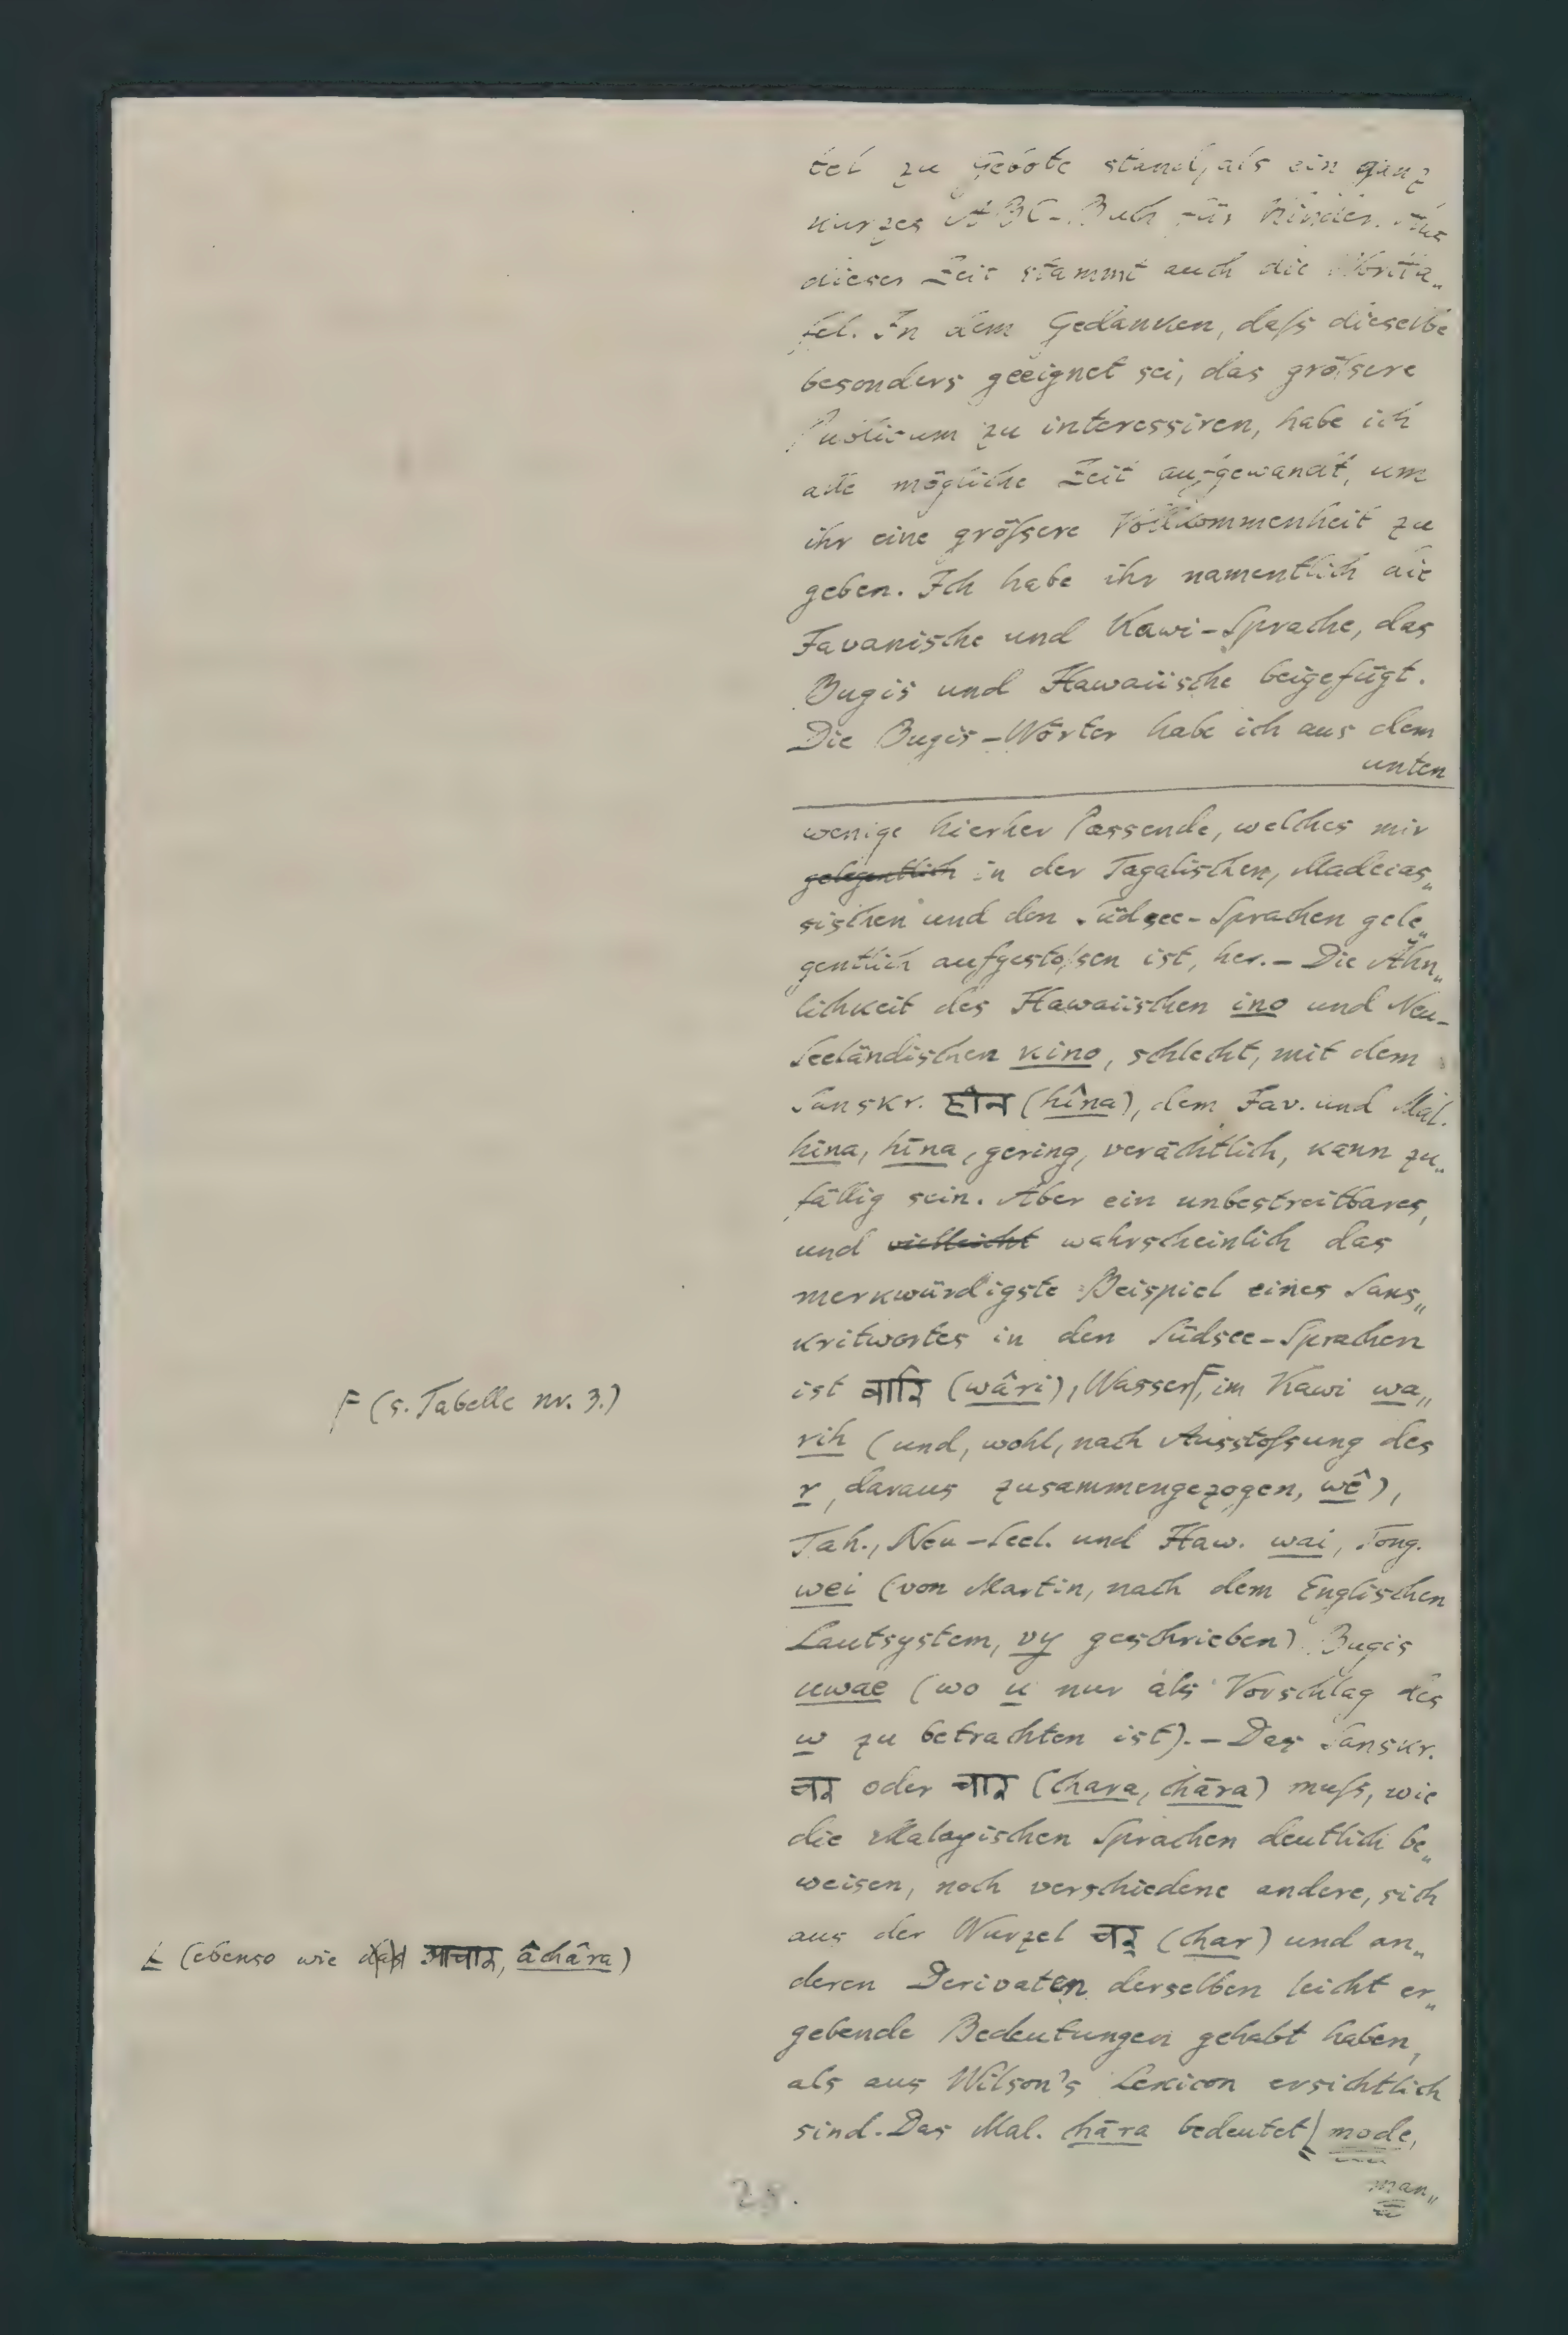 tel zu Gebote stand, als ein ganz
kurzes ABC-Buch für Kinder. Aus
dieser Zeit stammt auch die Wortta„
fel. In dem Gedanken, daſs dieselbe
besonders geeignet sei, das gröſsere
Publicum zu interessiren, habe ich
alle mögliche Zeit aufgewandt, um
ihr eine gröſsere Vollkommenheit zu
geben. Ich habe ihr namentlich die
Javanische und Kawi-Sprache, das
Bugis und Hawaiische beigefügt.
Die Bugis-Wörter habe ich aus dem
unten
wenige hierher Passende, welches mir
gelegentlich in der Tagalischen, Madecas„
sischen und den Südsee-Sprachen gele„
gentlich aufgestoſsen ist, her. — Die Ähn„
lichkeit des Hawaiischen ino und Neu-
Seeländischen kino, schlecht, mit dem
Sanskr. हीन (hîna), dem Jav. und Mal.
hina, hīna, gering, verächtlich, kann zu„
fällig sein. Aber ein unbestreitbares,
und vielleicht wahrscheinlich das
merkwürdigste Beispiel eines Sans„
kritwortes in den Südsee-Sprachen
ist वारि (wâri), Wasser, im Kawi wa„
F (s. Tabelle nr. 3.)
rih (und, wohl, nach Ausstoſsung des
r, daraus zusammengezogen, wê),
Tah., Neu-Seel. und Haw. wai, Tong.
wei (von Martin, nach dem Englischen
Lautsystem, vy geschrieben) Bugis
uwae (wo u nur als Vorschlag des
w zu betrachten ist). — Das Sanskr.
चर oder चार (chara, chāra) muſs, wie
die Malayischen Sprachen deutlich be„
weisen, noch verschiedene andere, sich
aus der Wurzel चर् (char) und an„
(ebenso wie das आचार, âchâra)
deren Derivaten derselben leicht er„
gebende Bedeutungen gehabt haben,
als aus Wilson's Lexicon ersichtlich
sind. Das Mal. chāra bedeutet mode,
man„